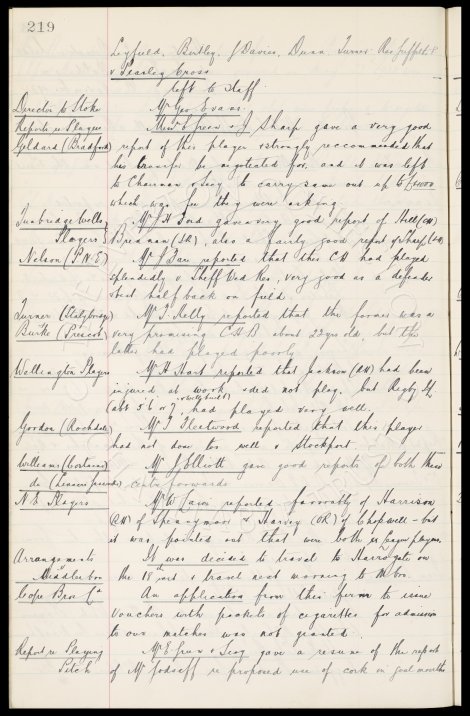 219
Leyfield, Burtley, J Davies, Dunn Turner Rae
v Fearley Cross
left to Staff
Director to Stoke Mr Geo Evans
Report re Player Messrs E Green & J Sharp gave a very good
Geldard (Bradford) report of this player & strongly reccommended that
his transfer be negotiated for, and it was left
to Chairman & Secy to carry same out up to £4000
which was fee they were asking
Tunbridge Wells Mr J H Ford gave a very good report of Hill (CH)
Players Brennan (IR), also a fairly good report of Sharp
Nelson (P.N.E) Mr J Law reported that this CH had played
splendidly v Sheff Utd Res, very good as a defender
& best half back on field.
Turner (Stalybridge) Mr T Kelly reported that the former was a
Burke (Prescot) very promising C.H.B about 22 yrs old but the
latter had played poorly
Wellington Players Mr H Hart reported that Jackson (RH) had been
injured at work & did not play. but Rigby
(abt 5'6 or 7 & well built) had played very well.
Gordon (Rochdale) Mr T Fleetwood reported that this player
had not done too well v Stockport
Williams (Corinthians) Mr J Elliott gave good reports of both these
do centre forwards
N.E. Players Mr W Law reported favorably of Harrison
(RH) of Spennymoor & Harvey (OR) of Chopwell - but
it was pointed out that were both players.
Arrangements It was decided to travel to Harrogate on
Middlesbro the 18th inst & travel next morning to M'bro.
Cope Bros Co An application from this firm to issue
vouchers with packets of cigarettes for admission
to our matches was not granted.
Report re Playing Mr E Green & Secy gave a resume of the report
Pitch of Mr re proposed use of cork in goal mouths